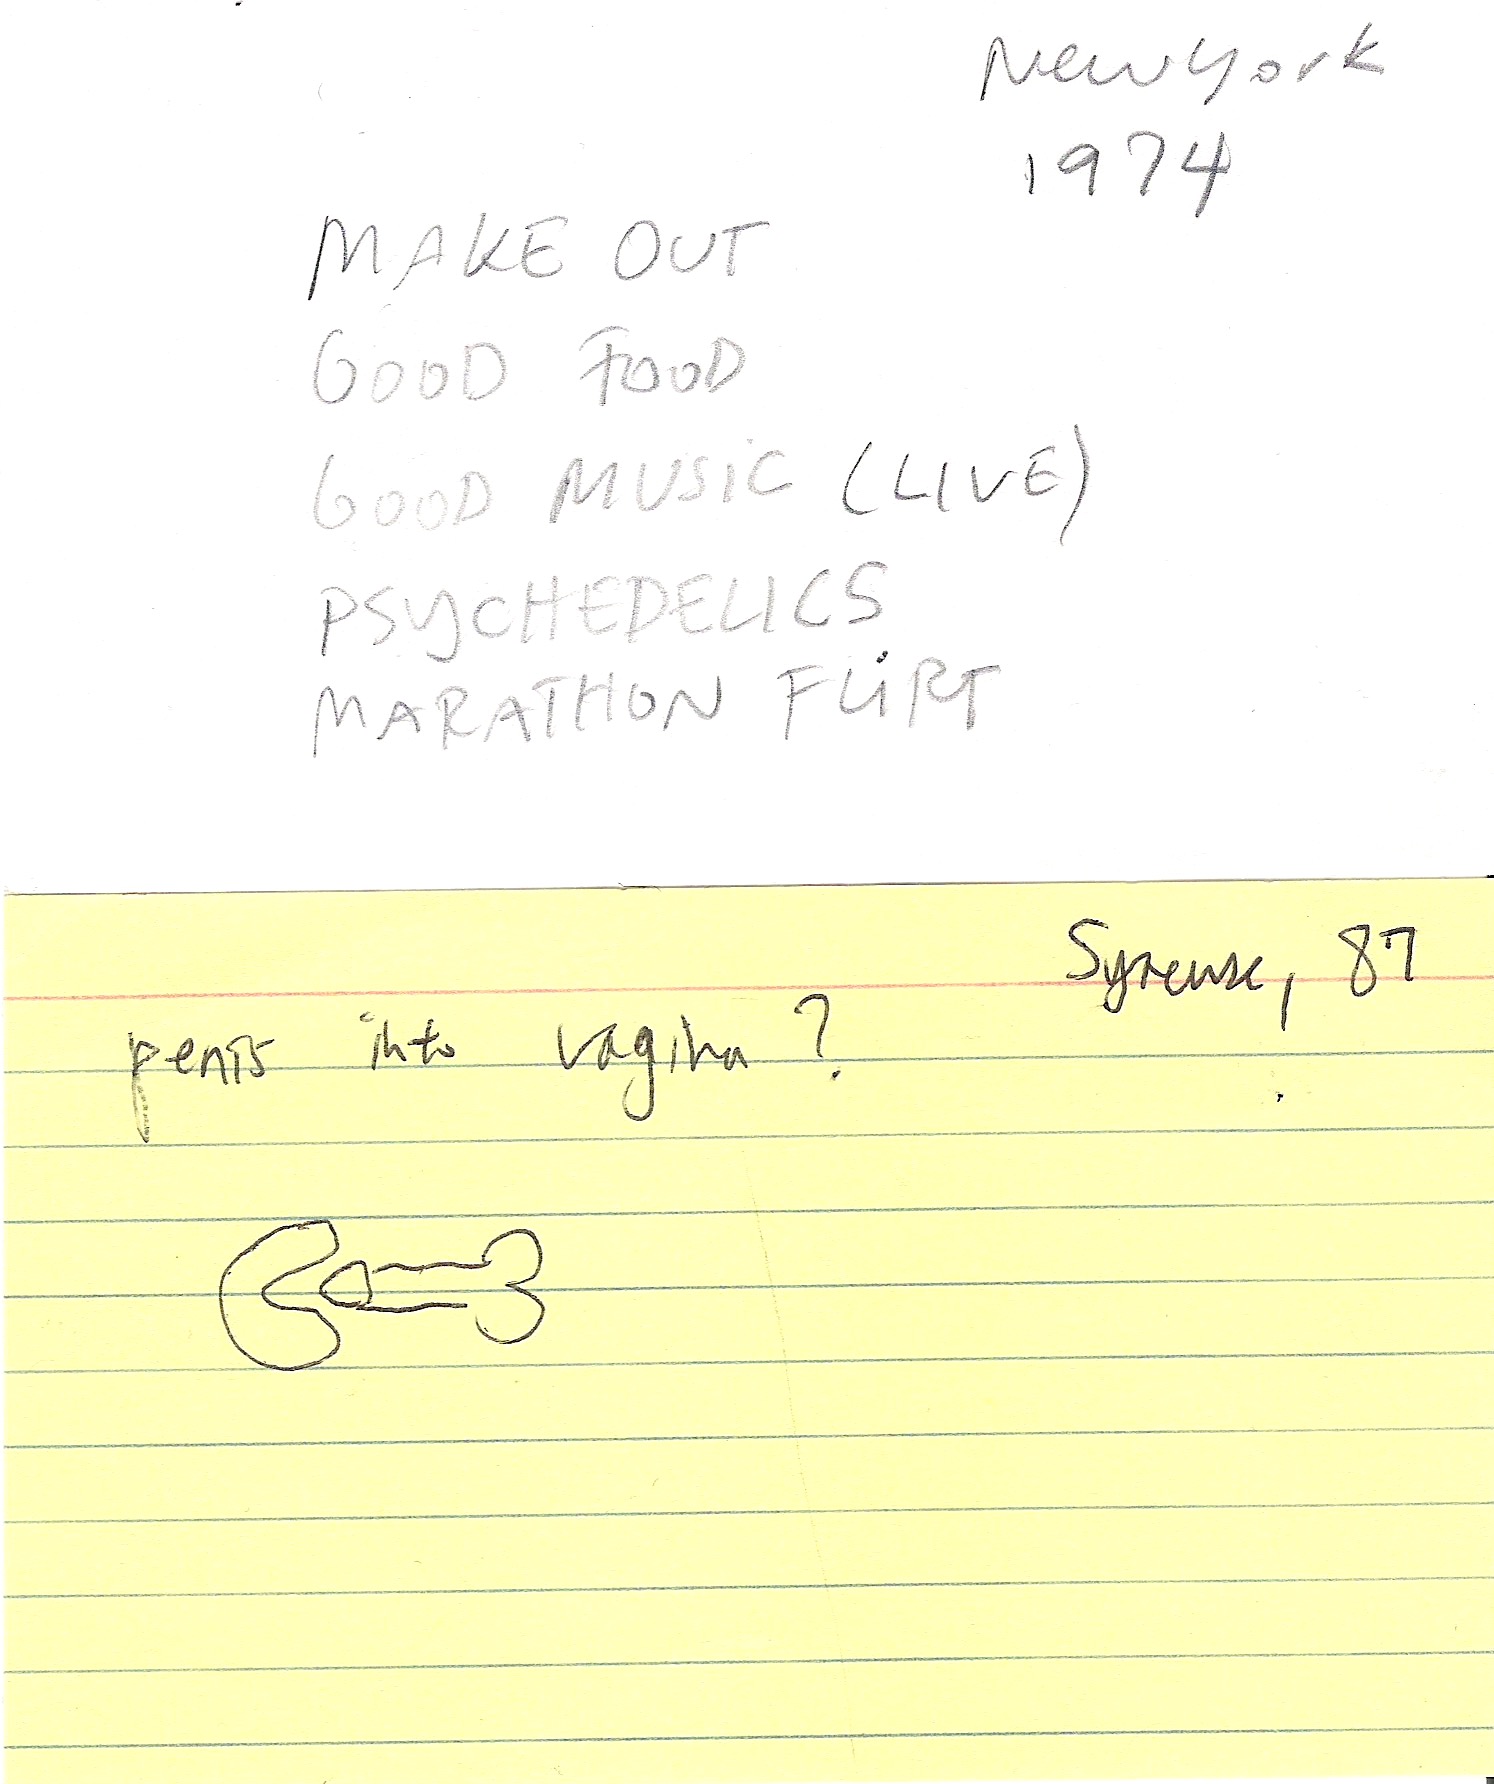 New York
1974
MAKE OUT
GOOD FOOD
GOOD MUSIC (LIVE)
PSYCHEDELICS
MARATHON FLIRT
Syracuse, 87
penis into vagina?